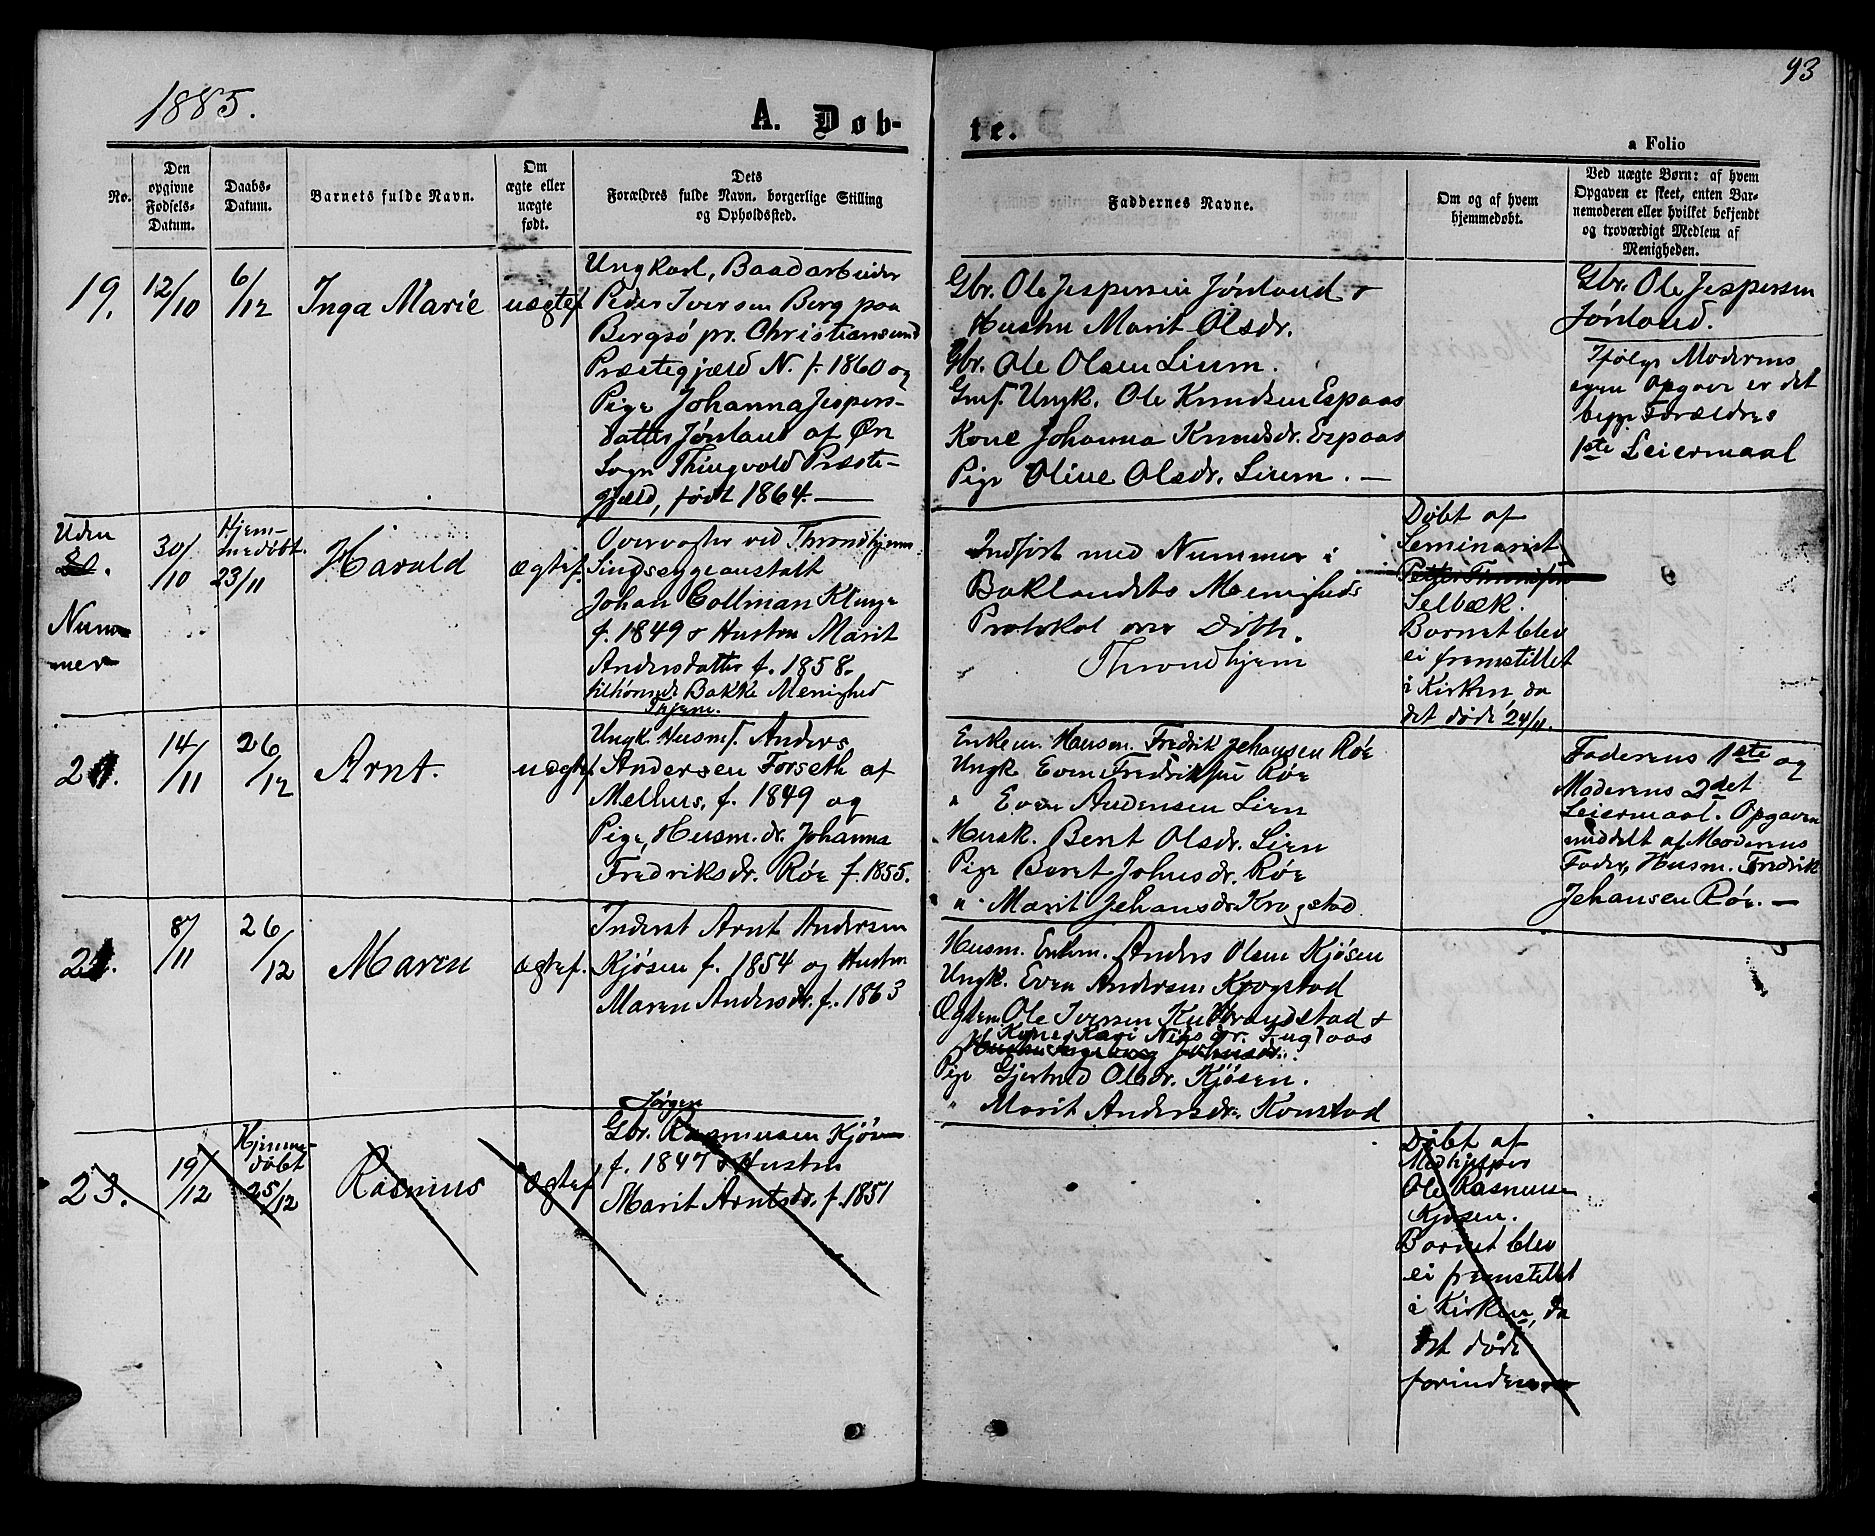 1885.
A. Døb-
te.
93
a Folio
No.
Den
opgivne
Fødsels-
Datum.
Daabs-
Datum.
Barnets fulde Navn.
Om
ægte eller
uægte
født.
Dets
Forældres fulde Navn, borgerlige Stilling
og Opholdsted.
Faddernes Navne.
Om og af hvem
hjemmedøbt.
Ved uægte Børn: af hvem
Opgaven er skeet, enten Bar-
nemoderen eller hvilket bekjendt
og troværdigt Medlem af
Menigheden.
19.
12/10
6/12
Inga Marie
uægtef.
Ungkarl, Baadarbeider
Peder Iversen Berg paa
Bergsø pr. Christiansund
Præstegjæld N. f. 1860 og
Pige Johanna Jespers-
datter Jønland af Øre
Sogn Thingvold Præste-
gjæld, født 1864.
Gbr. Ole Jespersen Jønland &
Hustru Marit Olsdr.
Gbr. Ole Olsen Lium.
Gmf. Ungk. Ole Knudsen Espaas
Kone Johanna Knudsdr. Espaas
Pige Oline Olsdr. Lium.
Gbr. Ole Jespersen
Jønland.
Ifølge Moderens
egen Opgave er det
begge Forældres
1ste Leiermaal
Uden
Num-
mer
30/10
Hjem-
medøbt.
23/11
Harald
ægtef.
Overvogter ved Throndhjems
Sindsygeanstalt
Johan Collman Klinge
f. 1849 & Hustru Marit
Andersdatter f. 1858.
tilhørende Bakke Menighed
Thjem.
Indført med Nummer i
Baklandets Menigheds
Protokol over Døbte.
Throndhjem
Døbt af
Seminarist
Selbæk.
Barnet blev
ei fremstillet
i Kirken da
det døde 24/11.
21.
14/11
26/12
Arnt.
uægtef.
Ungk. Husmf. Anders
Andersen Forseth af
Melhus, f. 1849 og
Pige, Husm. dr. Johanna
Fredriksdr. Røe f. 1855.
Enkem. Husm. Fredrik Jehansen Røe
Ungk. Even Fredriksen Røe
" Even Andersen Lien
Husk. Berit Olsdr. Lien
Pige Beret Johnsdr. Røe
" Marit Jehansdr. Krogstad
Faderens 1ste og
Moderens 2det
Leiermaal. Opgaven
meddelt af Moderens
Fader, Husm. Fredrik
Jehansen Røe.
21.
8/11
26/12
Maren
ægtef.
Inderst Arnt Andersen
Kjøsen f. 1854 og Hustru
Maren Andersdr. f. 1863
Husm. Enkem. Anders Olsen Kjøsen
Ungk. Even Andersen Krogstad
Ægtem. Ole Iversen Kulbrandstad &
Kone Kari Nilsdr. Fuglaas
Pige Gjertrud Olsdr. Kjøsen.
" Marit Andersdr. Konstad
23.
19/12
Hjemme-
døbt
25/12
Rasmus
Ægtef.
Jørgen
Gbr. Rasmussen Kjøsen
f. 1847 & Hustru
Marit Arntsdr. f. 1851
Døbt af
Medhjelper
Ole Rasmussen
Kjøsen.
Barnet blev
ei fremstillet
i Kirken, da
det døde
forinden